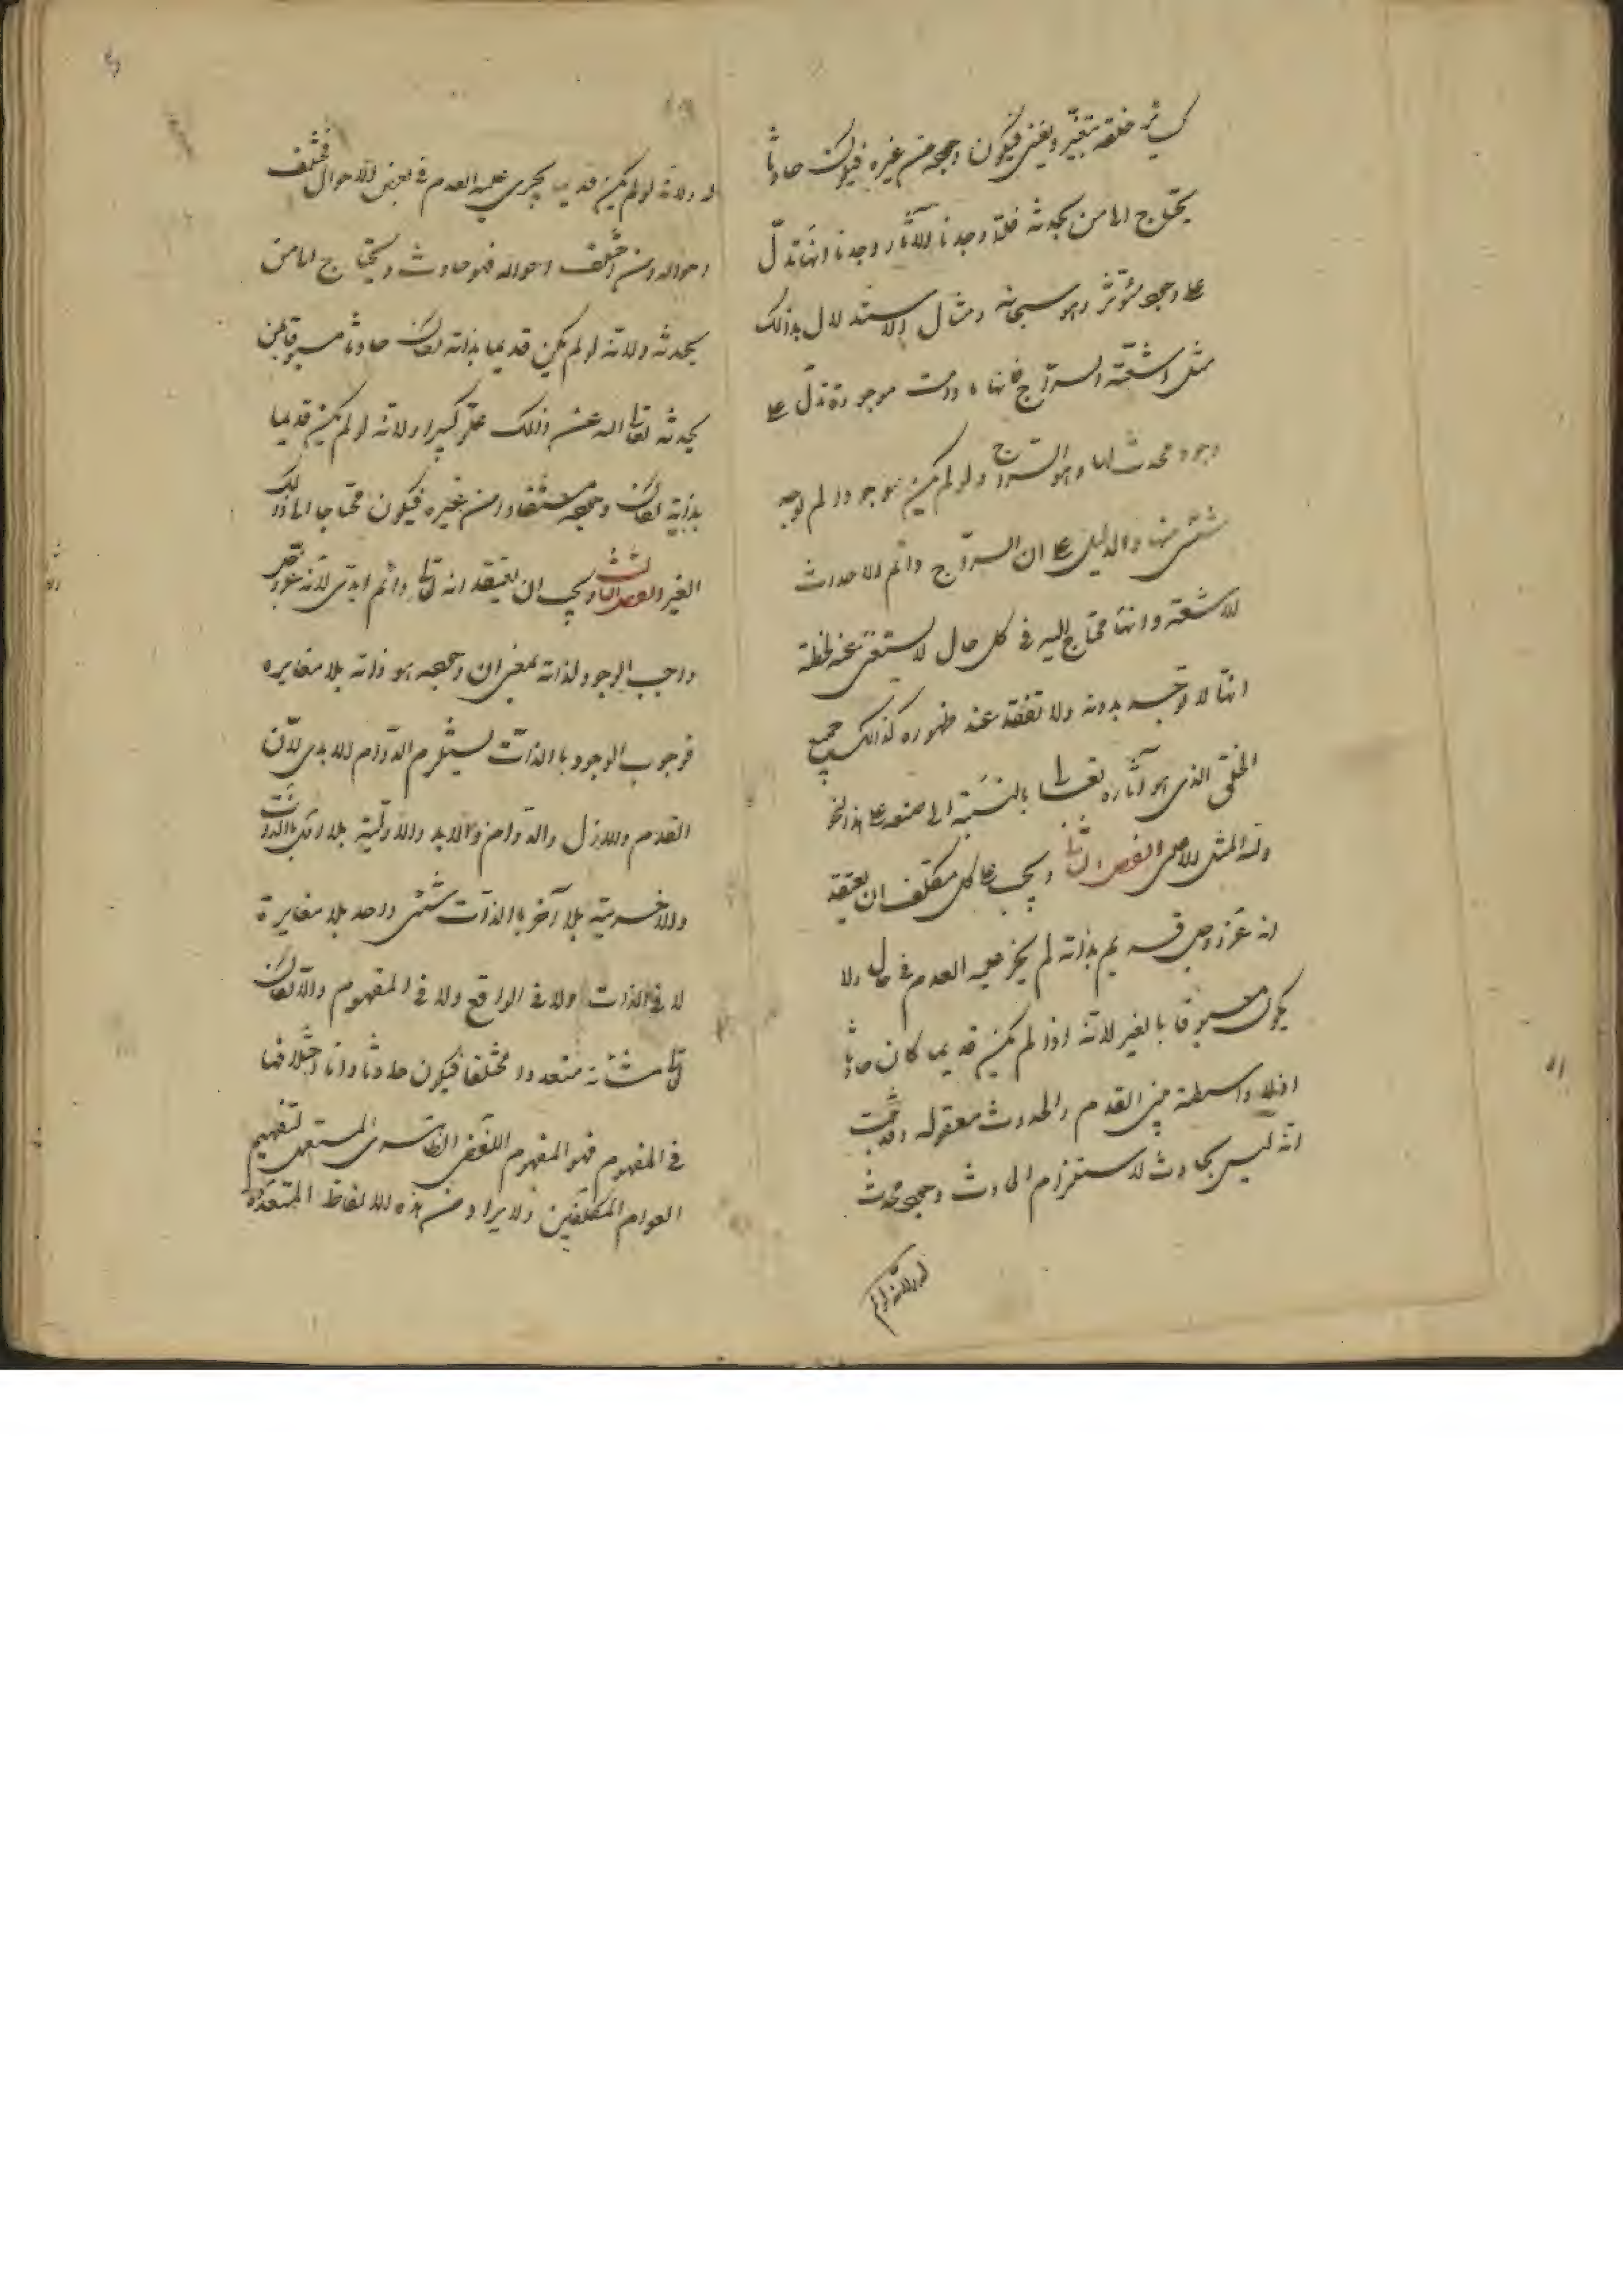 كسائر خلقه يتغير ويفنى فيكون وجوده من غيره فيكون حادثا
يحتاج الى من يحدثه فلمّا وجدنا الآثار وجدنا انها تدلّ
على وجود مؤثر وهو سبحانه ومثال الاستدلال بذلك
مثل اشعّة السراج فانها ما دامت موجودة تدلّ على
وجود محدث لها وهو السراج ولو لم يكن موجودا لم يوجد
شىء منها والدليل على ان السراج دائم الاحداث
للاشعة وانها محتاج اليه فى كل حال لا يستغنى عنه لحظة
انها لا توجد بدونه ولا تفقد عند ظهوره كذلك جميع
الخلق الذى هو آثاره تعالى بالنسبة الى صنعه على هذا النحو
وله المثل الاعلى الفصل الثانى ويجب على كل مكلف ان يعتقد
انه عز وجل قديم بذاته لم يجر عليه العدم فى حال ولا
يكون مسبوقا بالغير لانه اذا لم يكن قديما كان حادثا
اذ لا واسطة بين القدم والحدوث معقولة وقد ثبت
انه ليس بحادث لاستلزام الحادث وجود محدث
له ولانه لو لم
له ولانه لو لم يكن قديما يجرى عليه العدم فى بعض الاحوال فتختلف
احواله ومن اختلف احواله فهو حادث ويحتاج الى من
يحدثه ولانه لو لم يكن قديما بذاته لكان حادثا مسبوقا بمن
يحدثه تعالى الله عن ذلك علوّا كبيرا ولانه لو لم يكن قديما
بذاته لكان وجوده مستفادا من غيره فيكون محتاجا الى ذلك
الغير الفصل الثالث ويجب ان يعتقد انه تعالى دائم ابدى لانه عز وجل
واجب الوجود لذاته بمعنى ان وجوده هو ذاته بلا مغايرة
فوجوب الوجود بالذات يستلزم الدوام الابدى لان
القدم والازل والدوام والابد والاولية بلا اول بالذات
والاخرية بلا آخر بالذات شىء واحد بلا مغايرة
لا فى الذات ولا فى الواقع ولا فى المفهوم والا لكان
تعالى متعددا مختلفا فيكون حادثا وانما اختلافها
فى المفهوم فهو المفهوم اللفظى الظاهرى المستعمل لتفهيم
العوام المكلفين ولا يراد من هذه الالفاظ المتعددة